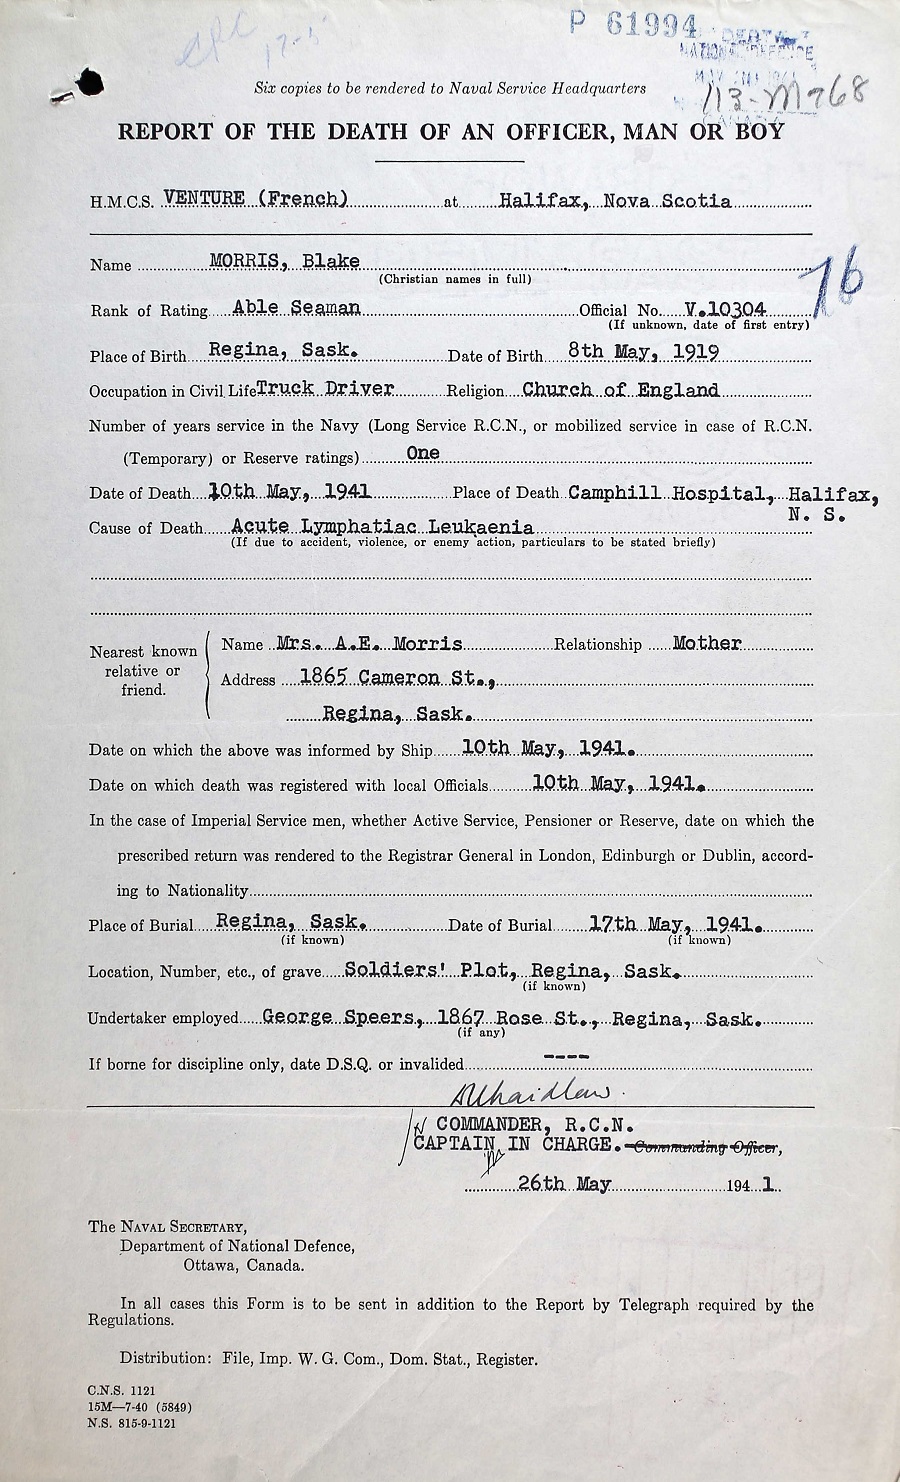 P 61994
NATIONAL DEFENCE
113-M768
CANADA
Six copies to be rendered to Naval Service Headquarters
REPORT OF THE DEATH OF AN OFFICER, MAN OR BOY
H.M.C.S. VENTURE (French) at Halifax, Nova Scotia
Name MORRIS, Blake
(Christian names in full)
76
Rank of Rating Able Seaman Official No. V.10304
(If unknown, date of first entry)
Place of Birth Regina, Sask. Date of Birth 8th May, 1919
Occupation in Civil Life Truck Driver Religion Church of England
Number of years service in the Navy (Long Service R.C.N., or mobilized service in case of R.C.N.
(Temporary) or Reserve ratings) One
Date of Death 10th May, 1941 Place of Death Camphill Hospital, Halifax,
N. S.
Cause of Death Acute Lymphatiac Leukaenia
(If due to accident, violence, or enemy action, particulars to be stated briefly)
Nearest known relative or friend.
Name Mrs. A.E. Morris Relationship Mother
Address 1865 Cameron St.,
Regina, Sask.
Date on which the above was informed by Ship 10th May, 1941.
Date on which death was registered with local Officials 10th May, 1941.
In the case of Imperial Service men, whether Active Service, Pensioner or Reserve, date on which the
prescribed return was rendered to the Registrar General in London, Edinburgh or Dublin, accord-
ing to Nationality
Place of Burial Regina, Sask. Date of Burial 17th May, 1941.
(if known) (if known)
Location, Number, etc., of grave Soldiers' Plot, Regina, Sask.
(if known)
Undertaker employed George Speers, 1867 Rose St., Regina, Sask.
(if any)
If borne for discipline only, date D.S.Q. or invalided ----
COMMANDER, R.C.N.
CAPTAIN IN CHARGE. Commanding Officer,
26th May 1941.
The NAVAL SECRETARY,
Department of National Defence,
Ottawa, Canada.
In all cases this Form is to be sent in addition to the Report by Telegraph required by the
Regulations.
Distribution: File, Imp. W. G. Com., Dom. Stat., Register.
C.N.S. 1121
15M—7-40 (5849)
N.S. 815-9-1121